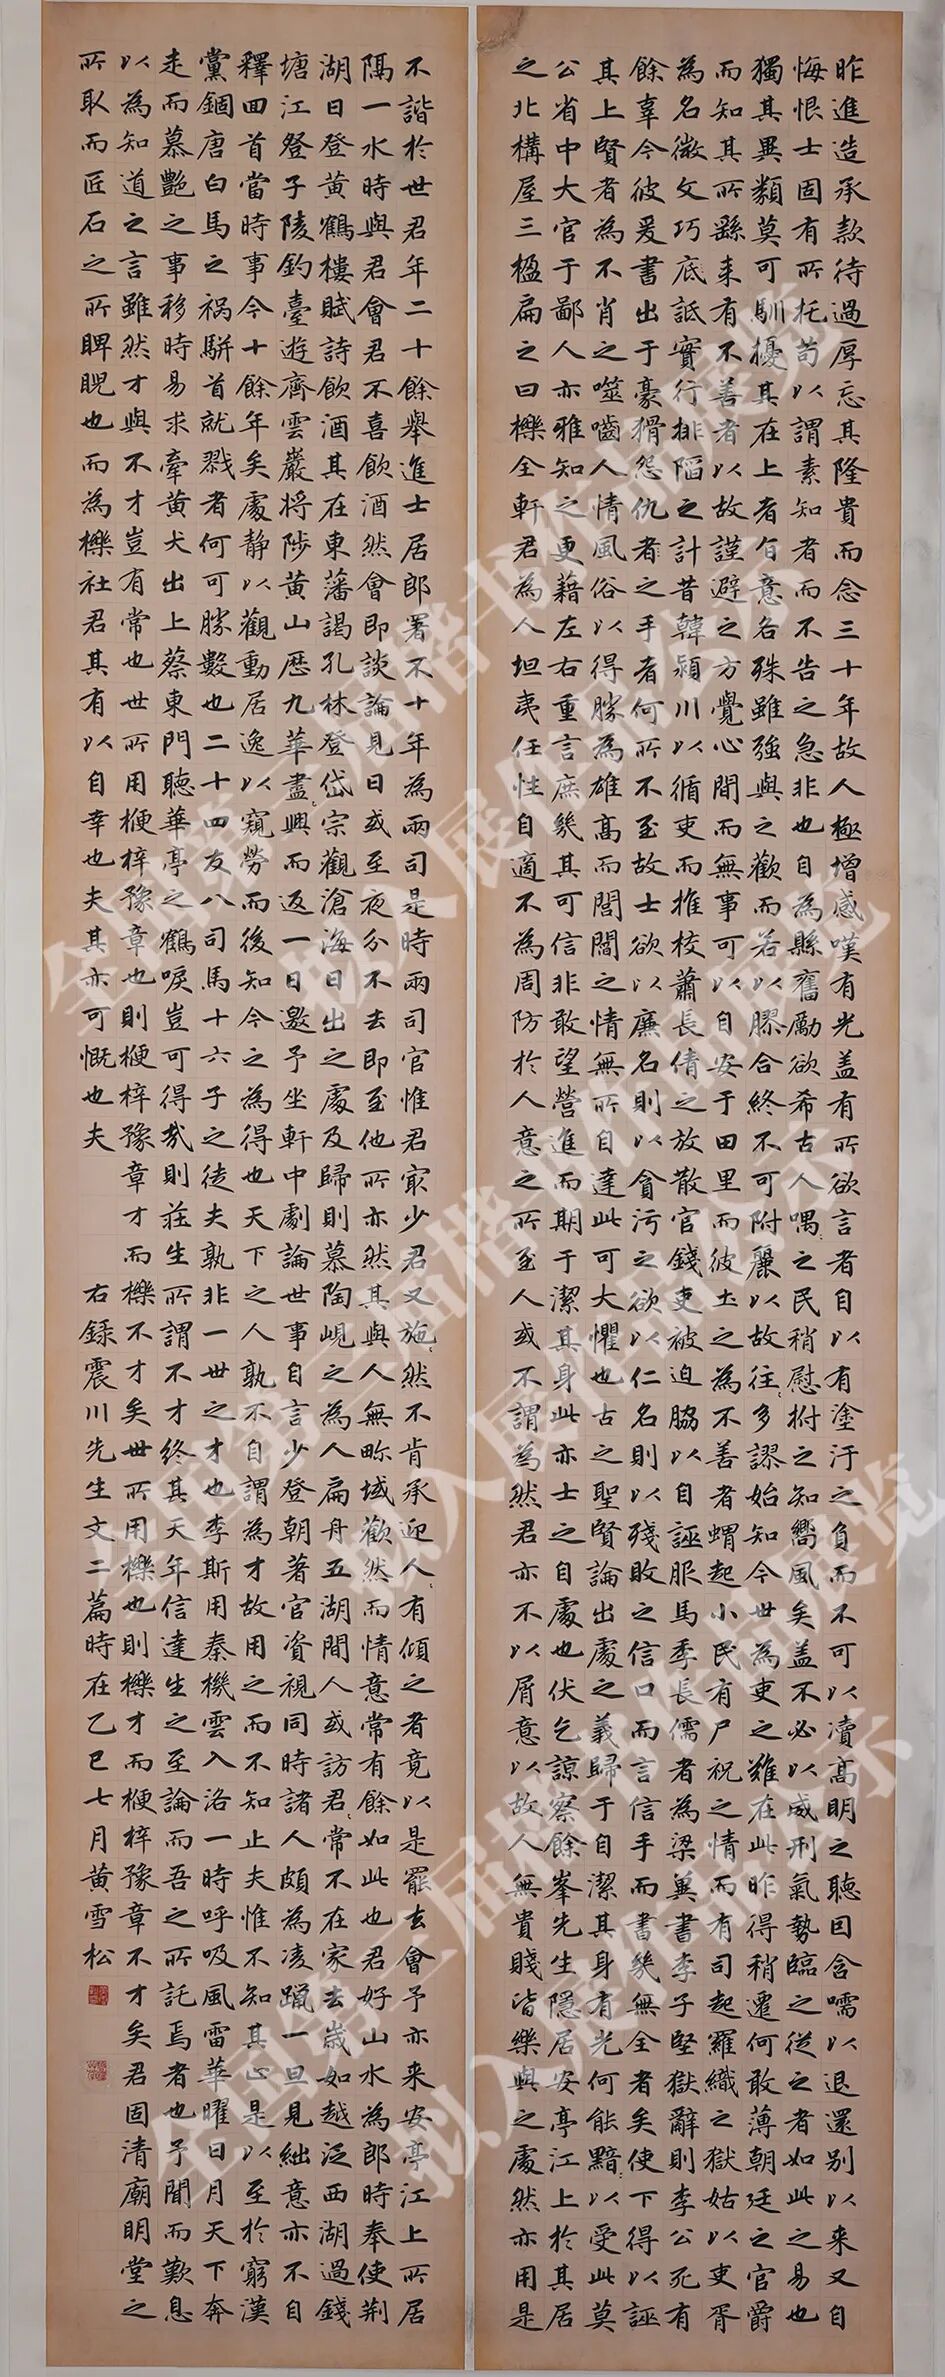 昨進造承款待過厚忘其隆貴而念三十年故人極增感嘆有光盖有所欲言者自以有塗汙之負而不可以瀆高明之聽囙含嚅以退還别以来又自
悔恨士固有所托苟以謂素知者而不告之急非也自為縣奮勵欲希古人喁〻之民稍慰拊之知嚮風矣盖不必以威刑氣勢臨之從之者如此之易也
獨其異類莫可馴擾其在上者自意各殊雖強與之歡而若以膠合終不可附麗以故往〻多謬始知今世為吏之難在此昨得稍遷何敢薄朝廷之官爵
而知其所繇来有不善者以故謹避之方覺心間而無事可以自安于田里而彼土之為不善者蝟起小民有尸祝之情而有司起羅織之獄姑以吏胥
為名微文巧底詆實行排陷之計昔韓潁川以循吏而推校蕭長倩之放散官錢吏被迫脇以自誣服馬季長儒者為梁冀書李子堅獄辭則李公死有
餘辜今彼爰書出于豪猾怨仇者之手者何所不至故士欲以廉名則以貪污之欲以仁名則以殘敗之信口而言信手而書幾無全者矣使下得以誣
其上賢者為不肖之噬嚙人情風俗以得勝為雄高而閭閻之情無所自達此可大懼也古之聖賢論出處之義歸于自潔其身有光何能黯〻以受此莫
公省中大官于鄙人亦雅知之更藉左右重言庶幾其可信非敢望營進而期于潔其身此亦士之自處也伏乞諒察餘峯先生隱居安亭江上於其居
之北構屋三楹扁之曰櫟全軒君為人坦夷任性自適不為周防於人意之所至人或不謂為然君亦不以屑意以故人無貴賤皆樂與之處然亦用是
不諧於世君年二十餘舉進士居郎署不十年為兩司是時兩司官惟君冣少君又施〻然不肯承迎人〻有傾之者竟以是罷去會予亦来安亭江上所居
隔一水時與君會君不喜飲酒然會即談論見日或至夜分不去即至他所亦然其與人無畛域歡然而情意常有餘如此也君好山水為郎時奉使荆
湖日登黄鶴樓賦詩飲酒其在東藩謁孔林登岱宗觀滄海日出之處及歸則慕陶峴之為人扁舟五湖間人或訪君〻常不在家去歲如越泛西湖過錢
塘江登子陵釣臺遊齊雲巖將陟黄山歷九華盡興而返一日邀予坐軒中劇論世事自言少登朝著官資視同時諸人頗為凌躐一旦見絀意亦不自
釋回首當時事今十餘年矣處静以觀動居逸以窺勞而後知今之為得也天下之人孰不自謂為才故用之而不知止夫惟不知其止是以至於窮漢
黨錮唐白馬之禍駢首就戮者何可勝數也二十四友八司馬十六子之徒夫孰非一世之才也李斯用秦機雲入洛一時呼吸風雷華曜日月天下奔
走而慕艷之事移時易求牽黄犬出上蔡東門聽華亭之鶴唳豈可得哉則莊生所謂不才終其天年信達生之至論而吾之所託焉者也予聞而歎息
以為知道之言雖然才與不才豈有常也世所用楩梓豫章也則楩梓豫章才而櫟不才矣世所用櫟也則櫟才而楩梓豫章不才矣君固清廟明堂之
所取而匠石之所睥睨也而為櫟社君其有以自幸也夫其亦可慨也夫 右録震川先生文二篇時在乙巳七月黄雪松
全国第三届楷书作品展览
拟入展作品公示
全国第三届楷书作品展览
拟入展作品公示
全国第三届楷书作品展览
拟入展作品公示